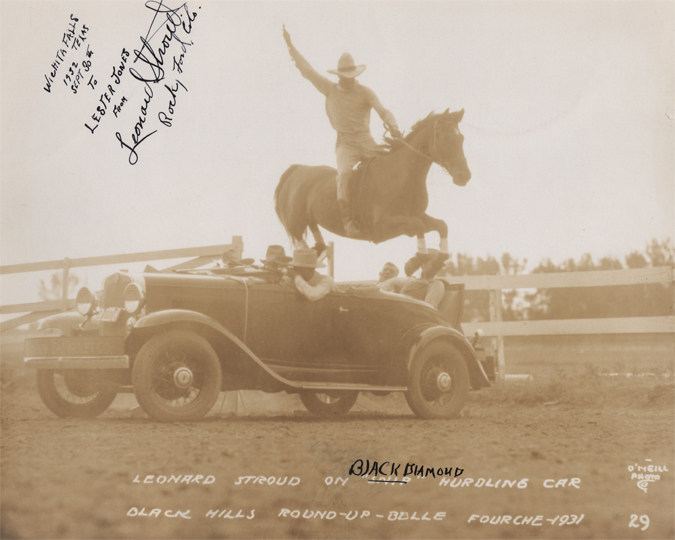 WICHITA FALLS
1932 TEXAS
SEPT 30th
TO
LESTER JONES
FROM
Leonard Stroud
Rocky Ford, Colo.
BLACK DIAMOND
LEONARD STROUD ON "SNIP" HURDLING CAR
BLACK HILLS ROUND-UP-BELLE FOURCHE-1931
O'NEILL
PHOTO
29